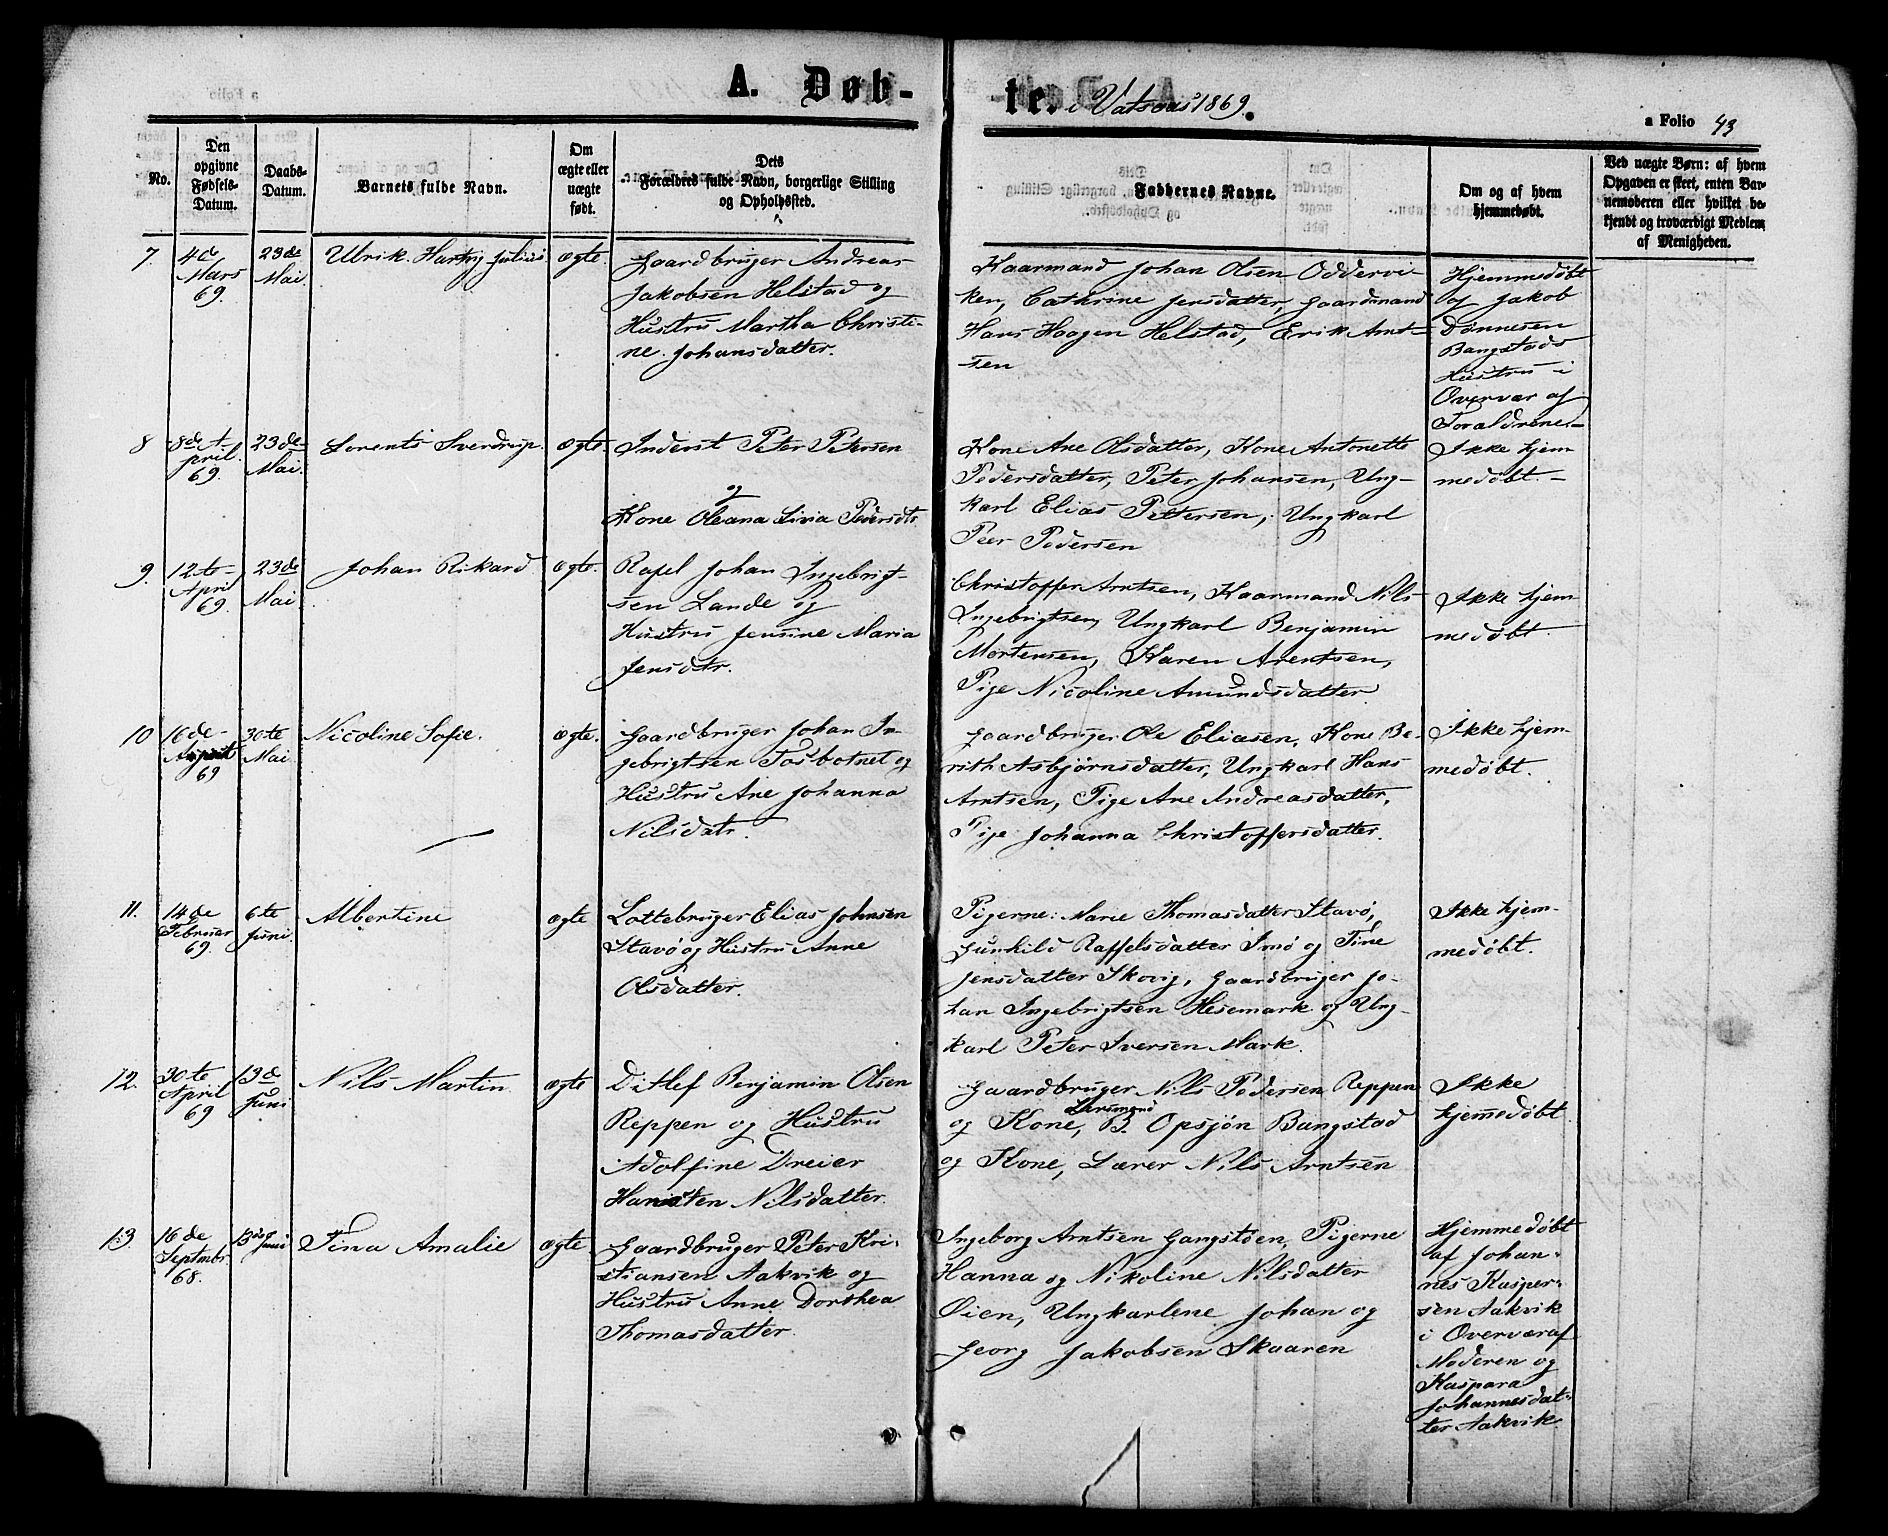 A. Døb-
te. i Vatsaas 1869.
a Folio 43
No.
Den
opgivne
Fødsels-
Datum.
Daabs-
Datum.
Barnets fulde Navn.
Om
ægte eller
uægte
født.
Dets
Forældres fulde Navn, borgerlige Stilling
og Opholdssted.
Faddernes Navne.
Om og af hvem
hjemmedøbt.
Ved uægte Børn: af hvem
Opgaven er skeet, enten Bar-
nemoderen eller hvilket be-
kjendt og troværdigt Medlem
af Menigheden.
7.
4de
Mars
69.
23de
Mai.
Ulrik Hartvig Julius
ægte.
Gaardbruger Andreas
Jakobsen Helstad og
Hustru Martha Christi-
ne Johansdatter.
Kaarmand Johan Olsen Oddervi-
ken, Cathrine Jensdatter, Gaardmand
Hans Haagen Helstad, Erik Arnt-
sen
Hjemmedøbt
af Jakob
Dønnesen
Bangstads
Hustru i
Overvær af
Foraldrene.
8
8de A-
pril
69.
23de
Mai.
Lorents Sverdrup.
ægte.
Inderst Peter Petersen
og
Kone Oleana Livia Pedersdtr.
Kone Ane Olsdatter, Kone Antonette
Pedersdatter, Peter Johansen, Ung-
karl Elias Pettersen, Ungkarl
Peer Pedersen
Ikke hjem
medøbt.
9.
12te
April
69.
23de
Mai
Johan Rikard
ægte.
Rafel Johan Ingebrigt-
sen Lande og
Hustru Jensine Maria
Jensdtr.
Christoffer Arntsen, Kaarmand Nils
Ingebrigtsen, Ungkarl Benjamin
Mortensen, Karen Arentsen,
Pige Nicoline Amundsdatter
Ikke hjem
medøbt.
10
16de
April
69
30te
Mai
Nicoline Sofie.
ægte.
Gaardbruger Johan In-
gebrigtsen Tosbotnet og
Hustru Ane Johanna
Nilsdatr.
Gaardbruger Ole Eliasen, Kone Be-
rith Asbjørnsdatter, Ungkarl Hans
Arntsen, Pige Ane Andreasdatter,
Pige Johanna Christoffersdatter.
Ikke hjem-
medøbt.
11.
14de
Februar
69.
6te
Juni.
Albertine
ægte
Lottebruger Elias Johnsen
Stavø og Hustru Anne
Olsdatter.
Pigerne: Marie Thomasdatter Stavø,
Gunhild Raffelsdatter Imø og Tine
Jensdatter Skovig, Gaardbruger Jo-
han Ingebrigtsen Hesemark og Ung-
karl Peter Iversen Mark.
Ikke hjem-
medøbt.
12.
30te
April
69
13de
Juni
Nils Martin
ægte
Ditlef Benjamin Olsen
Reppen og Hustru
Adolfine Dreier
Hansten Nilsdatter.
Gaardbruger Nils Pedersen Reppen
Lensmand
og Kone, B. Opsjön Bangstad
og Kone, Lærer Nils Arntsen
Ikke
hjemmedøbt.
13.
16de
Septmbr.
68.
13de Juni
Tina Amalie
ægte.
Gaardbruger Peter Kri-
stiansen Aakvik og
Hustru Anne Dorthea
Thomasdatter.
Ingeborg Arntsen Gangstøen, Pigerne
Hanna og Nikoline Nilsdatter
Øien, Ungkarlene Johan og
Georg Jakobsen Skaaren
Hjemmedøbt
af Johan-
nes Kasper-
sen Aakvik
i Overvær af
Moderen og
Kaspara
Johannesdat-
ter Aakvik